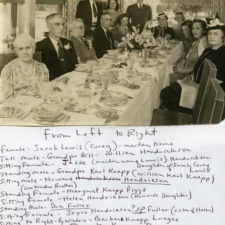 From Left to Right
Female - Sarah Lewis (Carey) - maiden name
Tall Male - Grandpa Bill - William Hendrickson
Sitting Female - Jessie (maiden name Lewis) Hendrickson
Daughter Sarah Carey Lewis
Standing male - Grandpa Karl Knapp (William Karl Knapp)
Sitting male - Howard Hendrikson
Standing Female - Margaret Knapp Riggs
Sitting Female - Helen Hendrikson (Howards Daughter)
Standing Male - Don Fuller
Sitting Female - Joyce Hendrikson Fuller (sister of Helen)
Sitting to Right - Barbara Knapp